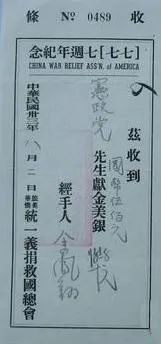 條 № 0489 收
念紀年週七[七七]
CHINA WAR RELIEF ASS'N. of AMERICA
茲收到
憲政党
先生獻金美銀
國幣伍佰元
經手人
中華民國卅三年八月二日
旅美華僑統一義捐救國總會